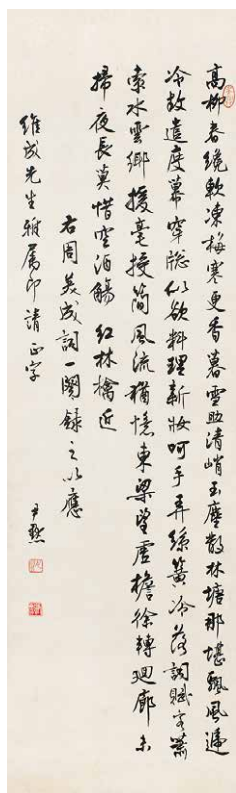 高柳春纔軟凍梅寒更香暮雪助清峭玉塵散林塘那堪飄風遞
冷故遣度幕穿牕似欲料理新妝呵手弄絲簧冷落詞賦客蕭
索水雲鄉援毫授簡風流猶憶東梁望虛檐徐轉迴廊未
掃夜長莫惜空酒觴 紅林檎近
右周美成詞一闋錄之以應
維成先生雅屬即請正字
尹默